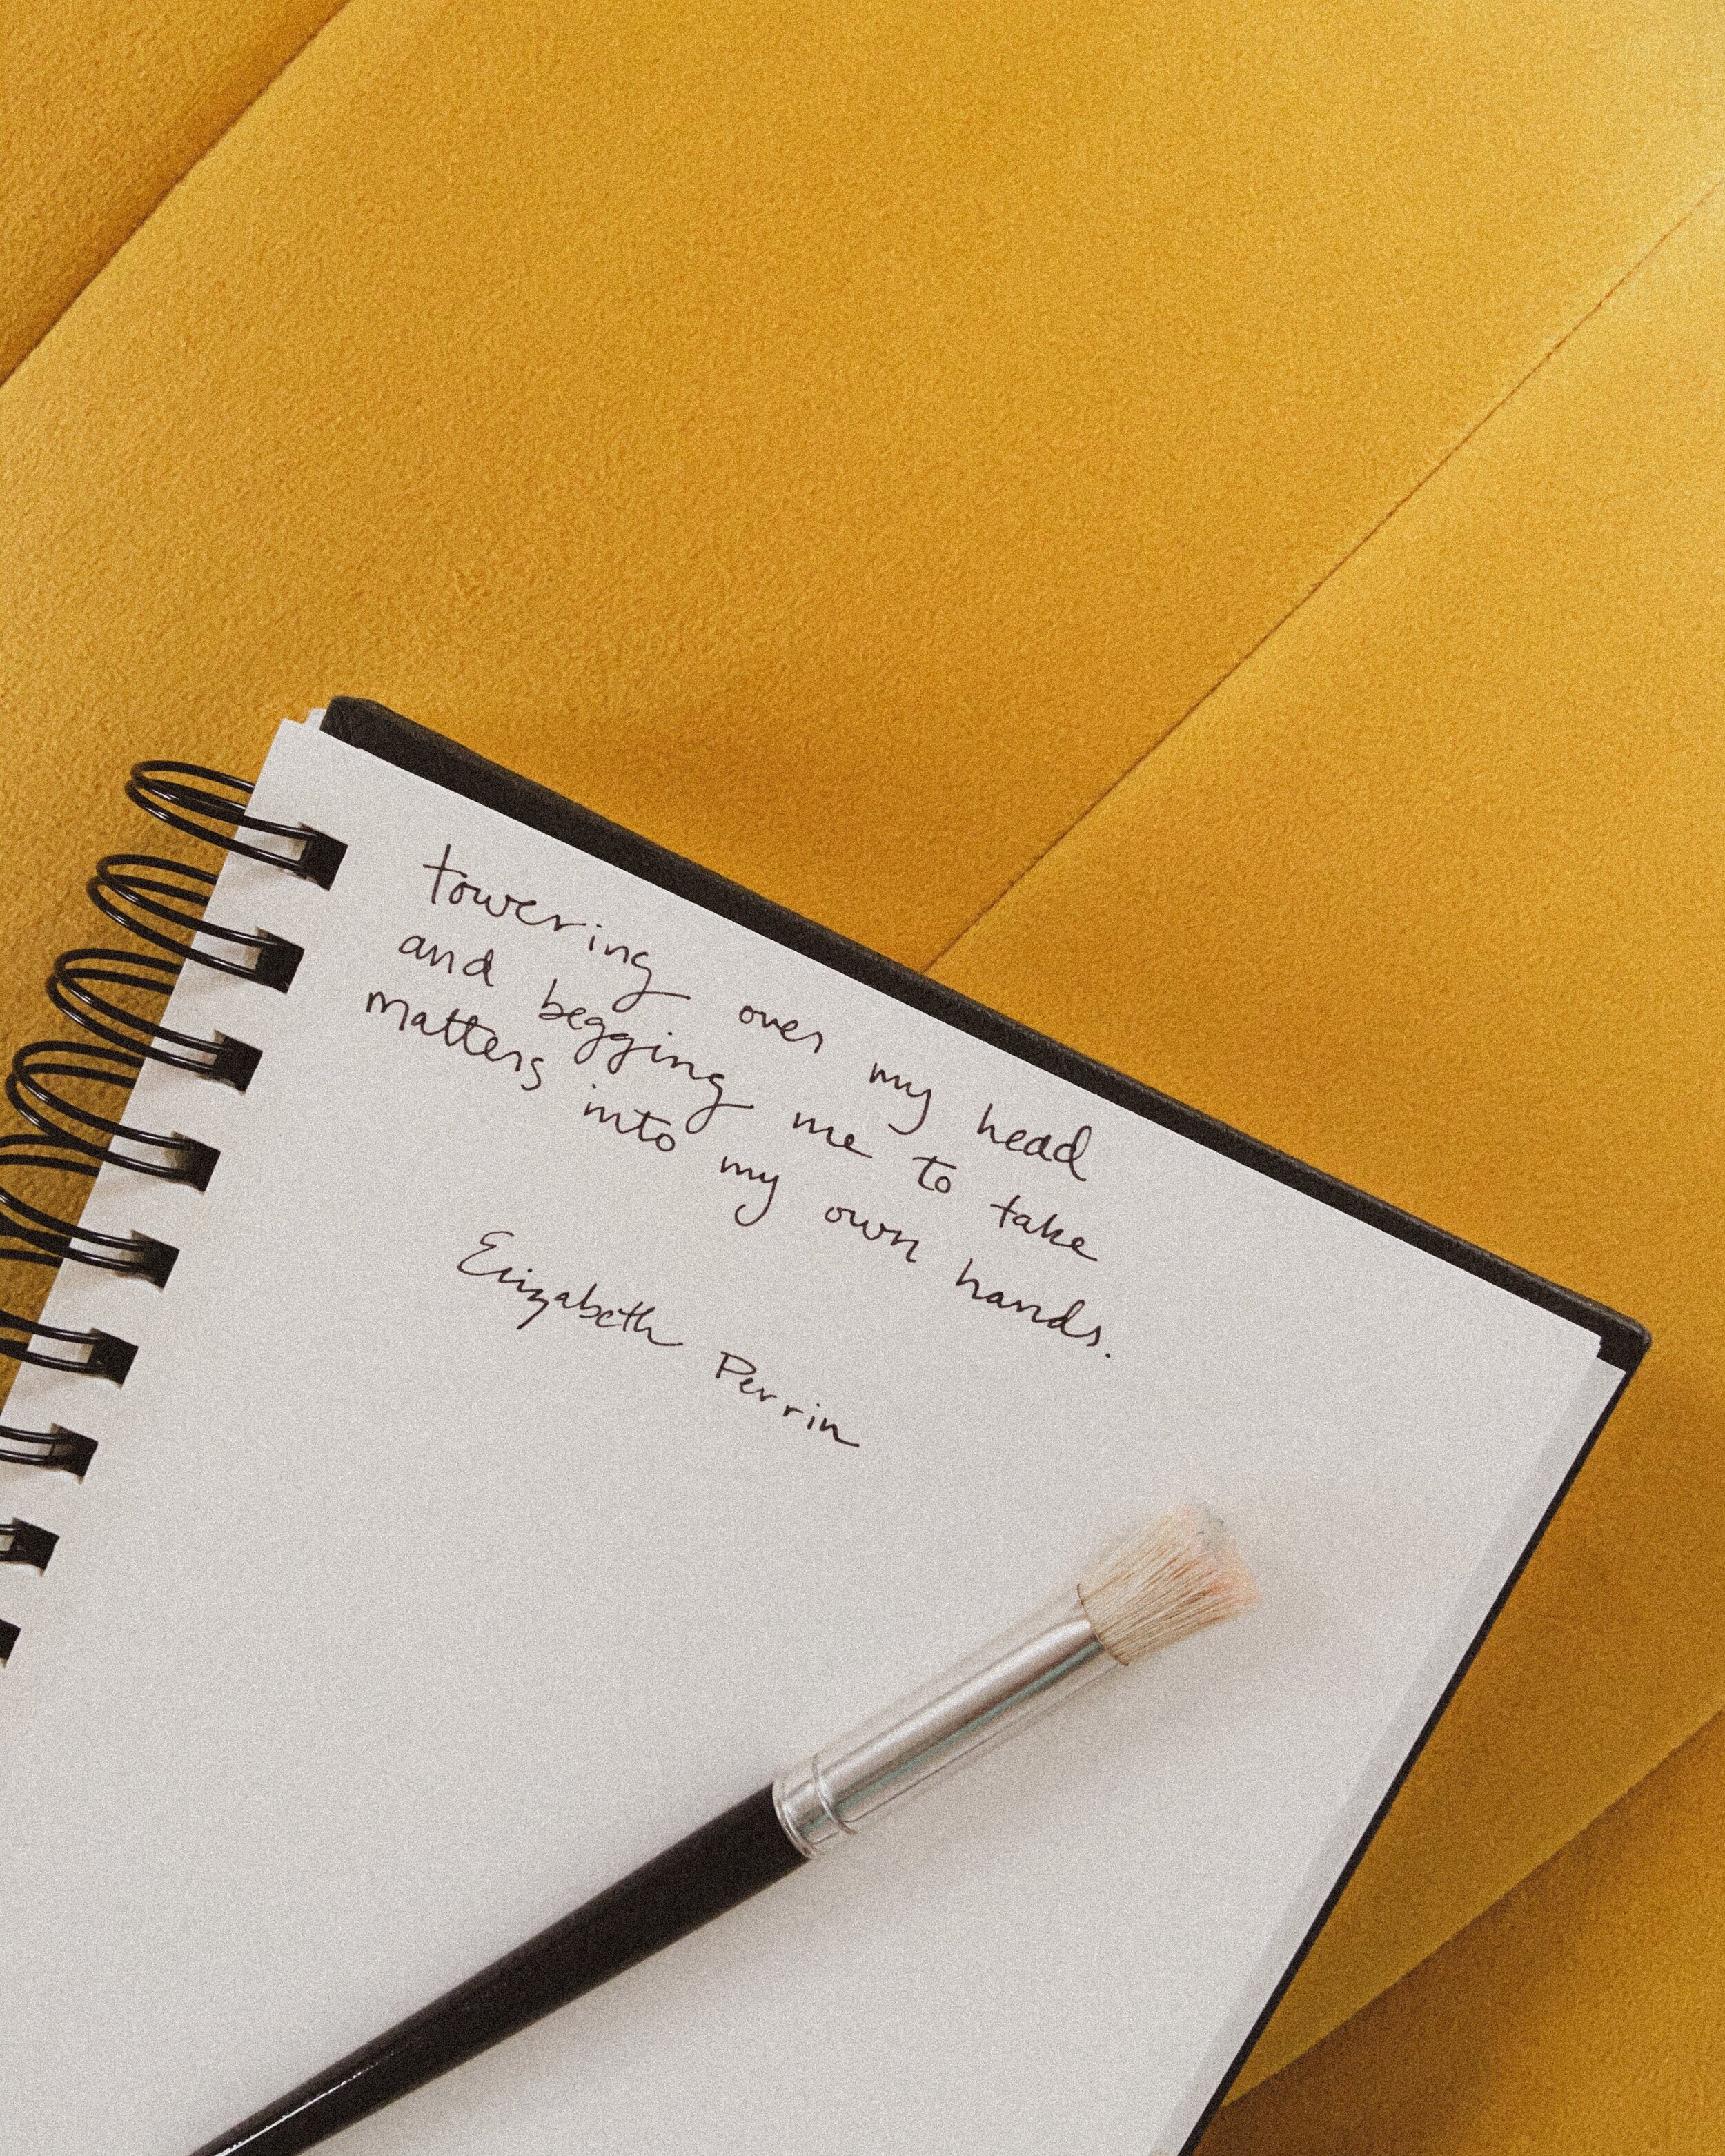 towering over my head
and begging me to take
matters into my own hands.
Elizabeth Perrin